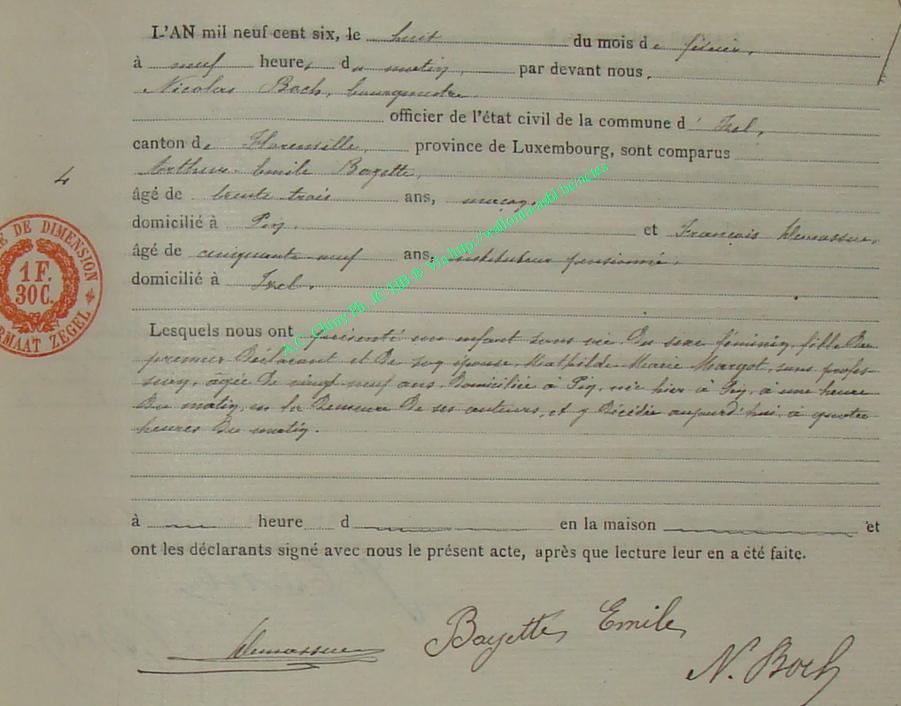 L'AN mil neuf cent six, le huit du mois de février,
à neuf heures du matin, par devant nous
Nicolas Boch, bourgmestre
officier de l'état civil de la commune d'Izel,
canton de Florenville, province de Luxembourg, sont comparus
Arthur Emile Bayette,
4
âgé de trente trois ans, maçon,
domicilié à Pin, et François Demasseu,
âgé de cinquante neuf ans, instituteur pensionné,
domicilié à Izel.
E DE DIMENSION
1 F.
30 C.
RMAAT ZEGEL
A.C. Chiny Ph. JC HB © Via http://wallonia-asbl.be/actes
Lesquels nous ont présenté un enfant sans vie du sexe féminin, fille du
premier déclarant et de son épouse, Mathilde Marie Margot, sans profes-
sion, âgée de vingt neuf ans, domiciliée à Pin, née hier à Pin, à une heure
du matin, en la demeure de ses auteurs, et y décédée aujourd'hui à quatre
heures du matin.
à heure d en la maison et
ont les déclarants signé avec nous le présent acte, après que lecture leur en a été faite.
Demasseu Bayette Emile
N. Boch